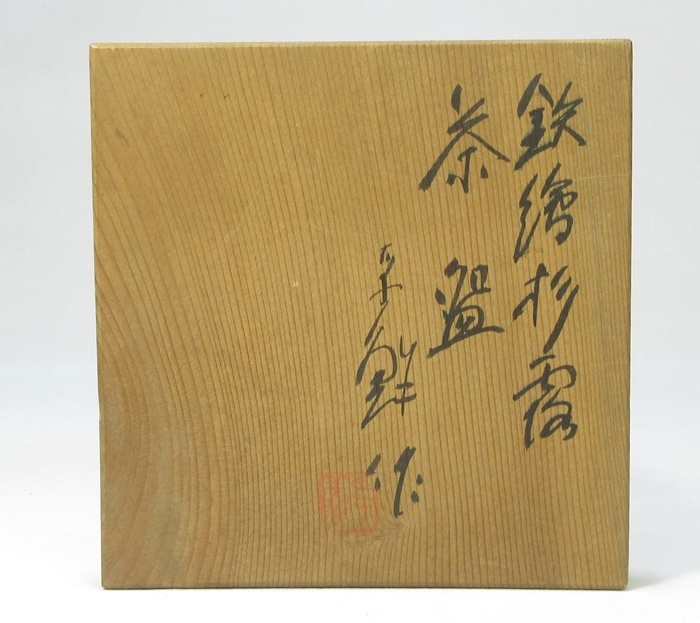 鉄繪杉露
茶盌
鮮作